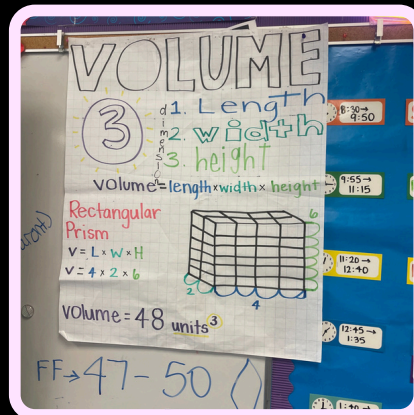 VOLUME
3 dimensions
1. Length
2. width
3. height
volume = length × width × height
Rectangular
Prism
V = L × W × H
V = 4 × 2 × 6
6
2
4
volume = 48 units³
FF → 47 - 50
8:30 →
9:50
9:55 →
11:15
11:20 →
12:40
12:45 →
1:35